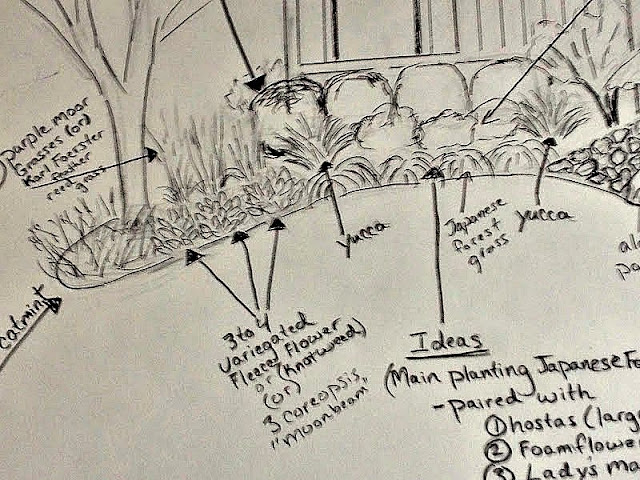 purple moor
Grasses (or)
Karl Foerster
feather
reed grass
catmint
3 to 4
Variegated
Fleece Flower
or (Knotweed)
(or)
3 coreopsis
"moonbeam"
yucca
Japanese
forest
grass
yucca
Ideas
(Main planting Japanese Fo
-paired with
① hostas (larg
② Foamflowe
③ Lady's ma